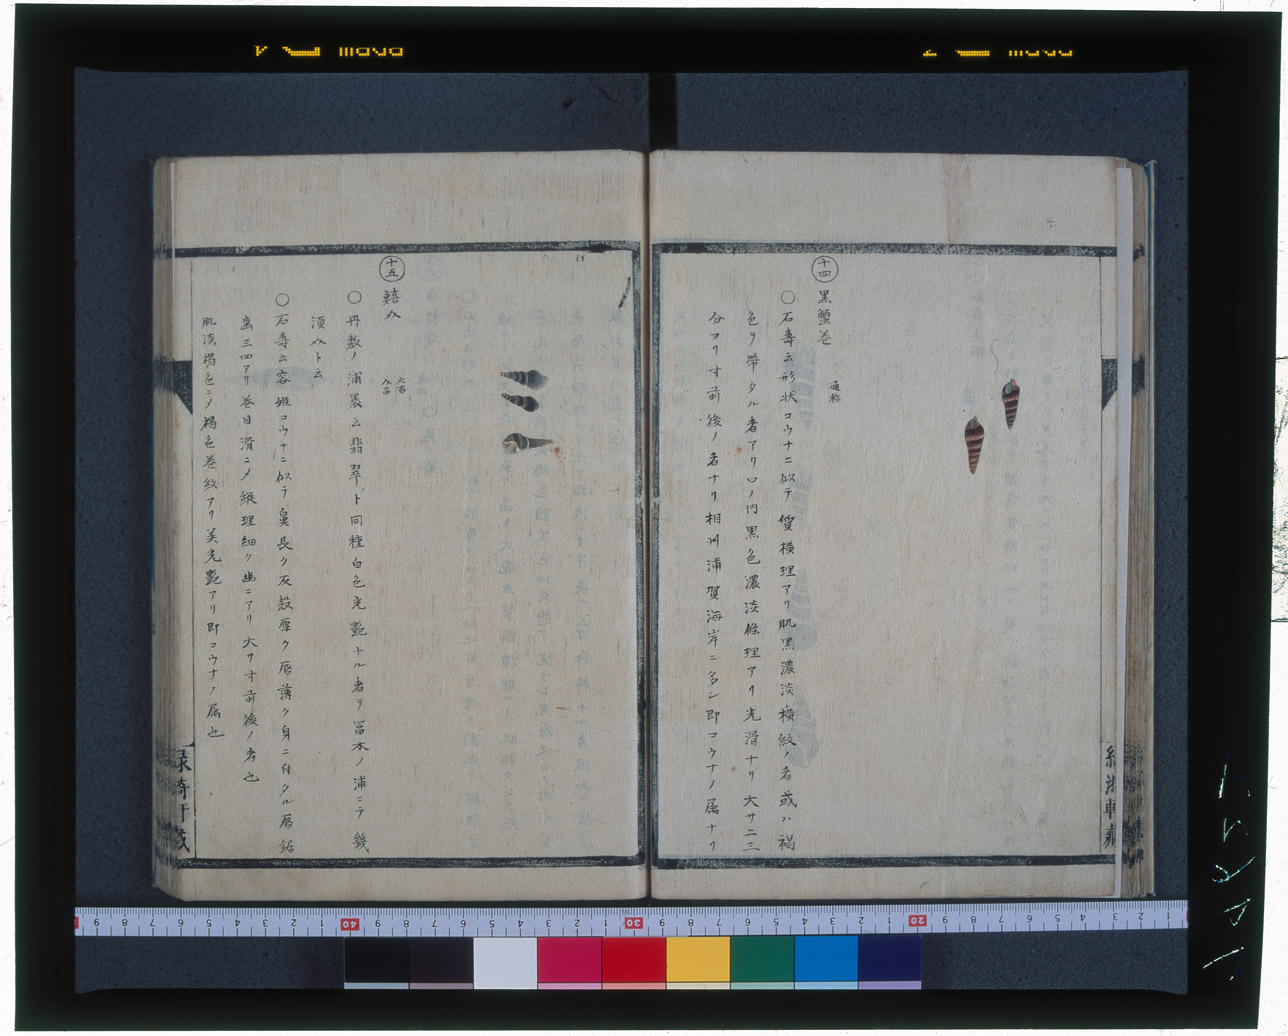 十四 黒蟹巻
通称
○石壽云形状コウナニ似テ質横理アリ肌黒濃淡横紋ノ者或ハ褐
色ヲ帯タル者アリ口ノ内黒色濃淡條理アリ光滑ナリ大サ二三
分ヨリ寸前後ノ者ナリ相州浦賀海岸ニ多シ即コウナノ属ナリ
十五
六百
八百
○丹敷ノ浦裏云翡翠ト同種白色光艶ナル者ヲ冨木ノ浦ニテ錢
須介ト云
○石壽云容姫コウナニ似テ鼻長ク灰殻厚ク唇薄ク身ニ付タル唇鋸
歯三四アリ巻目滑ニメ縦理細ク幽ニアリ大サ寸前後ノ者也
肌淡褐色ニメ褐色巻紋アリ美光艶アリ即コウナノ属也